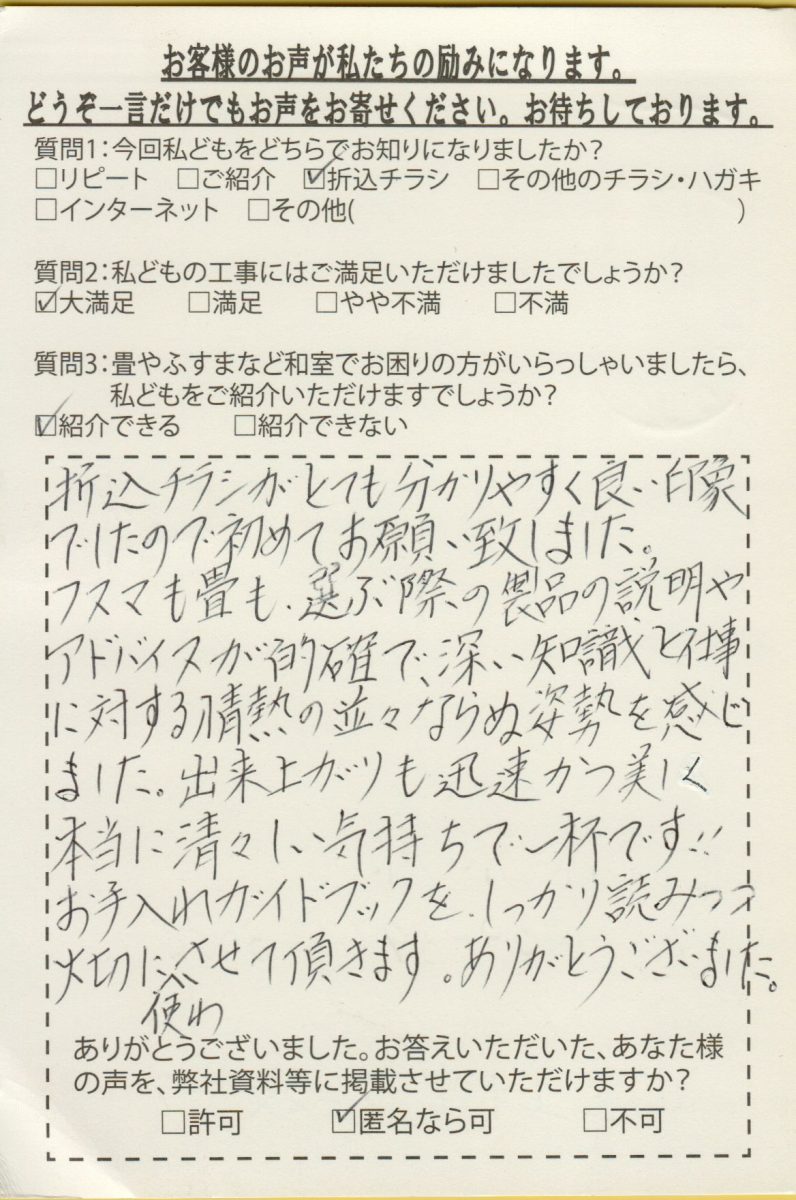 お客様のお声が私たちの励みになります。
どうぞ一言だけでもお声をお寄せください。お待ちしております。
質問1:今回私どもをどちらでお知りになりましたか?
□リピート □ご紹介 ☑折込チラシ □その他のチラシ・ハガキ
□インターネット □その他( )
質問2:私どもの工事にはご満足いただけましたでしょうか?
☑大満足 □満足 □やや不満 □不満
質問3:畳やふすまなど和室でお困りの方がいらっしゃいましたら、
私どもをご紹介いただけますでしょうか?
☑紹介できる □紹介できない
折込チラシがとても分かりやすく良い印象
でしたので初めてお願い致しました。
フスマも畳も、選ぶ際の製品の説明や
アドバイスが的確で、深い知識と仕事
に対する情熱の並々ならぬ姿勢を感じ
ました。出来上がりも迅速かつ美しく
本当に清々しい気持ちで一杯です!!
お手入れガイドブックを、しっかり読みつつ
大切に させて頂きます。ありがとうございました。
使わ
ありがとうございました。お答えいただいた、あなた様
の声を、弊社資料等に掲載させていただけますか?
□許可 ☑匿名なら可 □不可